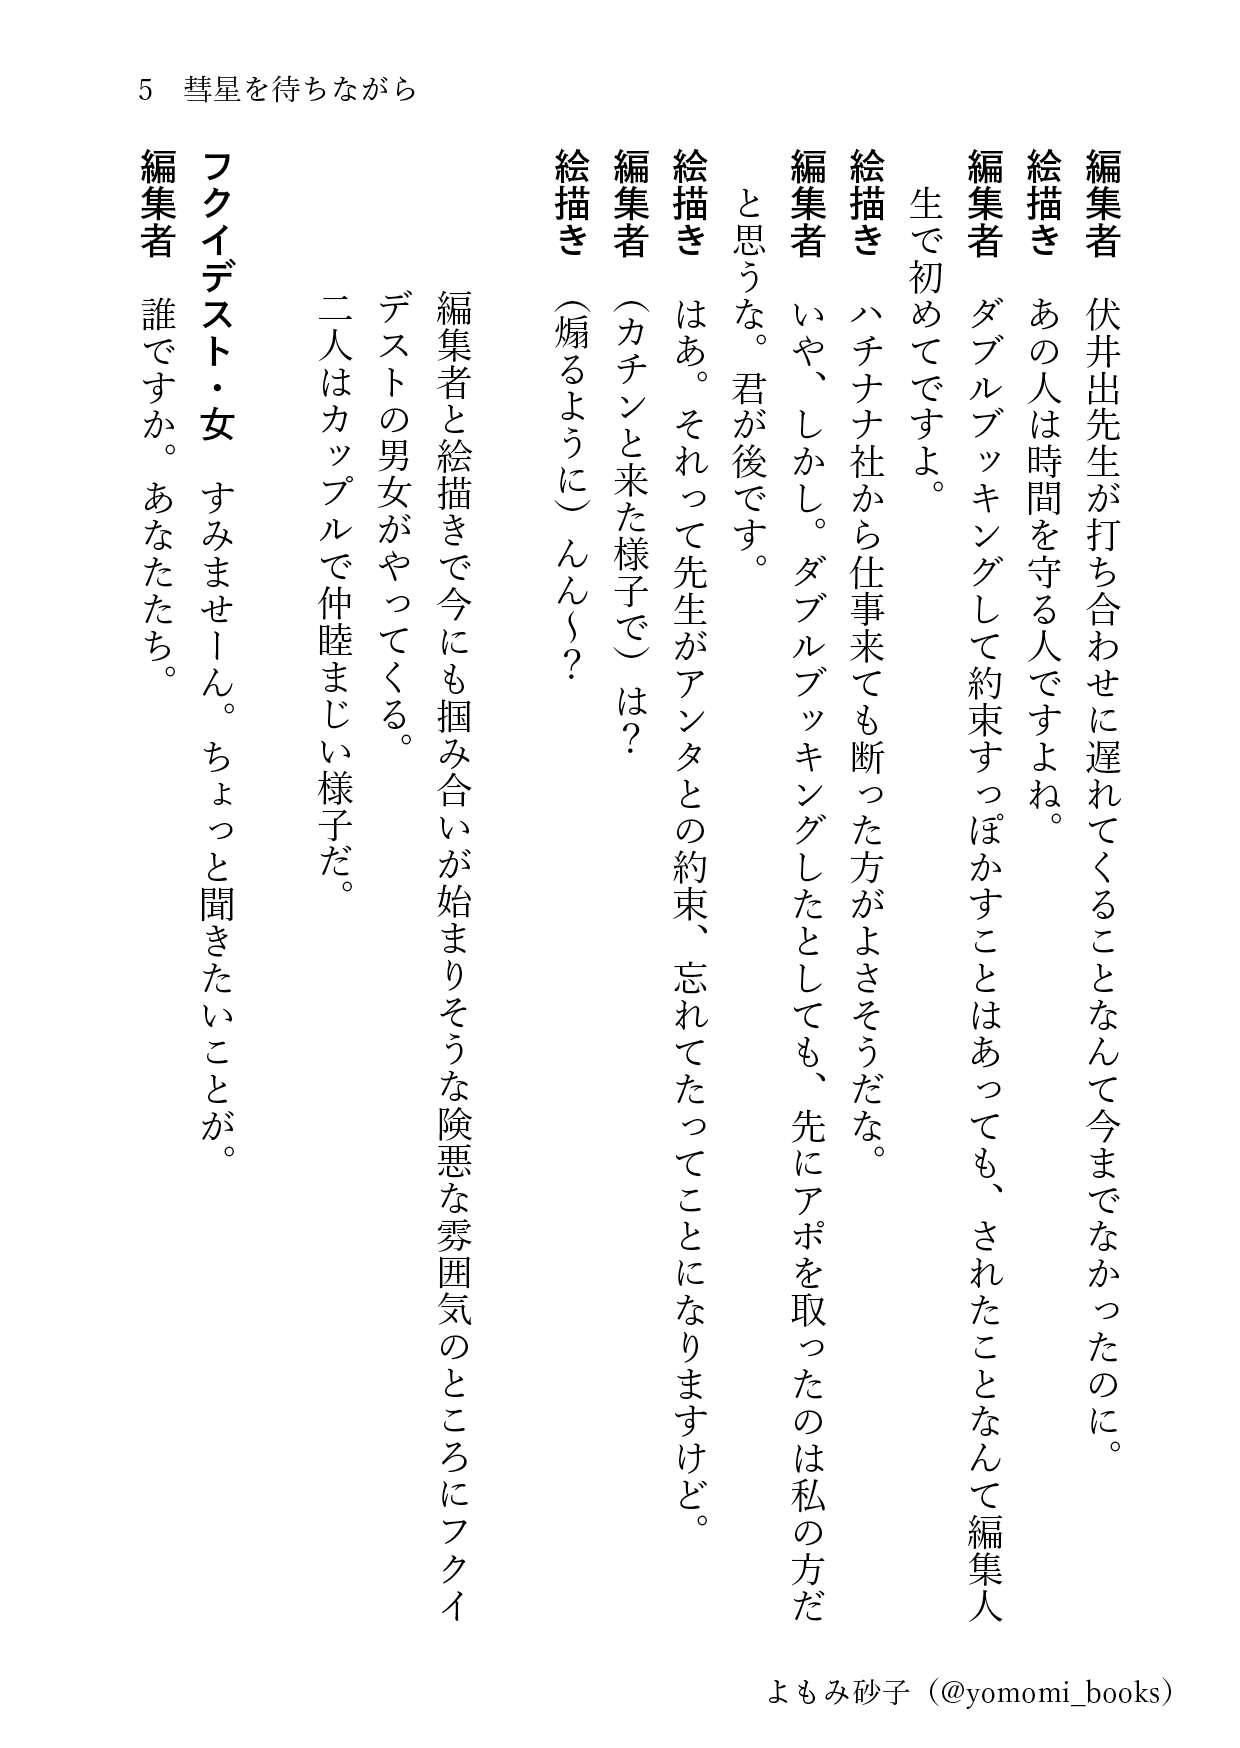 5 彗星を待ちながら
編集者 伏井出先生が打ち合わせに遅れてくることなんて今までなかったのに。
絵描き あの人は時間を守る人ですよね。
編集者 ダブルブッキングして約束すっぽかすことはあっても、されたことなんて編集人
生で初めてですよ。
絵描き ハチナナ社から仕事来ても断った方がよさそうだな。
編集者 いや、しかし。ダブルブッキングしたとしても、先にアポを取ったのは私の方だ
と思うな。君が後です。
絵描き はあ。それって先生がアンタとの約束、忘れてたってことになりますけど。
編集者 （カチンと来た様子で）は？
絵描き （煽るように）んん～？
編集者と絵描きで今にも掴み合いが始まりそうな険悪な雰囲気のところにフクイ
デストの男女がやってくる。
二人はカップルで仲睦まじい様子だ。
フクイデスト・女 すみませーん。ちょっと聞きたいことが。
編集者 誰ですか。あなたたち。
よもみ砂子（@yomomi_books）